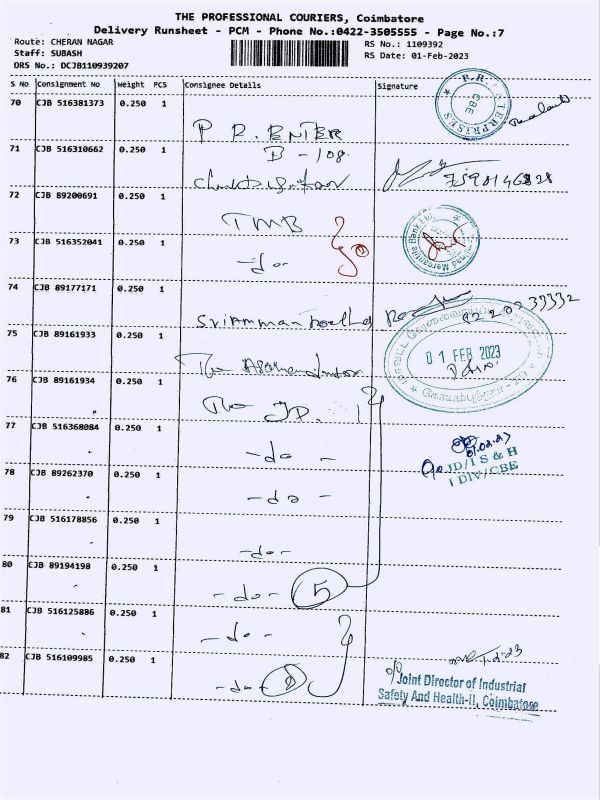 THE PROFESSIONAL COURIERS, Coimbatore
Delivery Runsheet - PCM - Phone No.:0422-3505555 - Page No.:7
Route: CHERAN NAGAR
RS No.: 1109392
Staff: SUBASH
RS Date: 01-Feb-2023
DRS No.: DCJB110939207
S No Consignment No Weight PCS Consignee Details Signature
70 CJB 516381373 0.250 1
P.R. ENTERPRISES
CBE
71 CJB 516310662 0.250 1
B - 108
72 CJB 89200691 0.250 1
TMB
Mercantile Bank Ltd.
73 CJB 516352041 0.250 1
-do-
74 CJB 89177171 0.250 1
75 CJB 89161933 0.250 1
The
01 FEB 2023
76 CJB 89161934 0.250 1
The JD
77 CJB 516368084 0.250 1
-do-
JD/I S & H
I DIV/CBE
78 CJB 89262370 0.250 1
-do-
79 CJB 516178856 0.250 1
-do-
80 CJB 89194198 0.250 1
-do- 5
81 CJB 516125886 0.250 1
-do-
82 CJB 516109985 0.250 1
-do-
Joint Director of Industrial
Safety And Health-II, Coimbatore